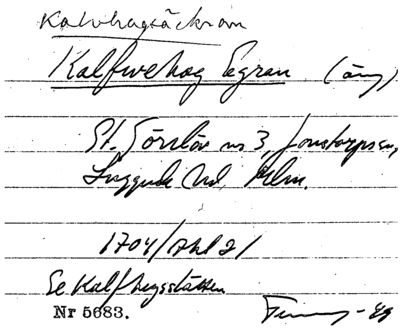 Kalvhagsäckran
Kalfwehag Egran (äng)
St. Görslöv nr 3, Jonstorps sn,
Luggude hd, Mlm.
1704/Akt 21
Se Kalfhagsstätten
Nr 5683.